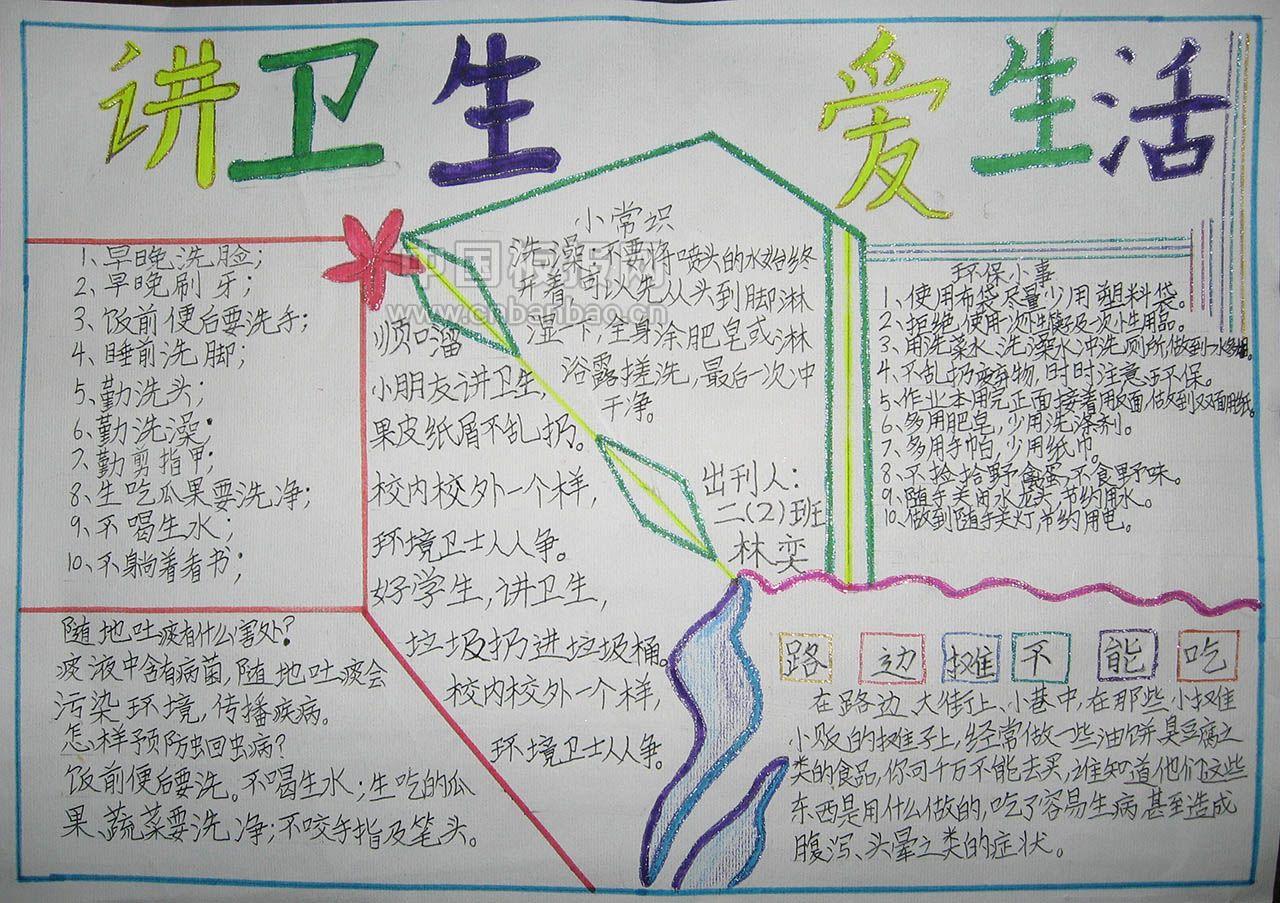 讲卫生 爱生活
1、早晚洗脸;
2、早晚刷牙;
3、饭前便后要洗手;
4、睡前洗脚;
5、勤洗头;
6、勤洗澡;
7、勤剪指甲;
8、生吃瓜果要洗净;
9、不喝生水;
10、不躺着看书;
随地吐痰有什么害处?
痰液中含有病菌,随地吐痰会
污染环境,传播疾病。
怎样预防蛔虫病?
饭前便后要洗。不喝生水;生吃的瓜
果、蔬菜要洗净;不咬手指及笔头。
顺口溜
小朋友讲卫生,
果皮纸屑不乱扔。
校内校外一个样,
环境卫士人人争。
好学生,讲卫生,
垃圾扔进垃圾桶。
校内校外一个样,
环境卫士人人争。
小常识
洗澡:不要将喷头的水始终
开着可以先从头到脚淋
湿一下,全身涂肥皂或淋
浴露搓洗,最后一次冲
干净。
出刊人:
二(2)班
林奕
中国板报网
www.cnbanbao.cn
环保小事
1、使用布袋尽量少用塑料袋。
2、拒绝使用一次性筷子及一次性用品。
3、用洗菜水、洗澡水冲洗厕所做到一水多用。
4、不乱扔废弃物,时时注意环保。
5、作业本用完正面接着用反面,做到双面用纸。
6、多用肥皂,少用洗涤剂。
7、多用手帕,少用纸巾。
8、不捡拾野禽蛋,不食野味。
9、随手关闭水龙头节约用水。
10、做到随手关灯节约用电。
路边摊不能吃
在路边、大街上、小巷中,在那些小摊
小贩的摊子上,经常做一些油饼臭豆腐之
类的食品,你可千万不能去买,谁知道他们这些
东西是用什么做的,吃了容易生病甚至造成
腹泻、头晕之类的症状。